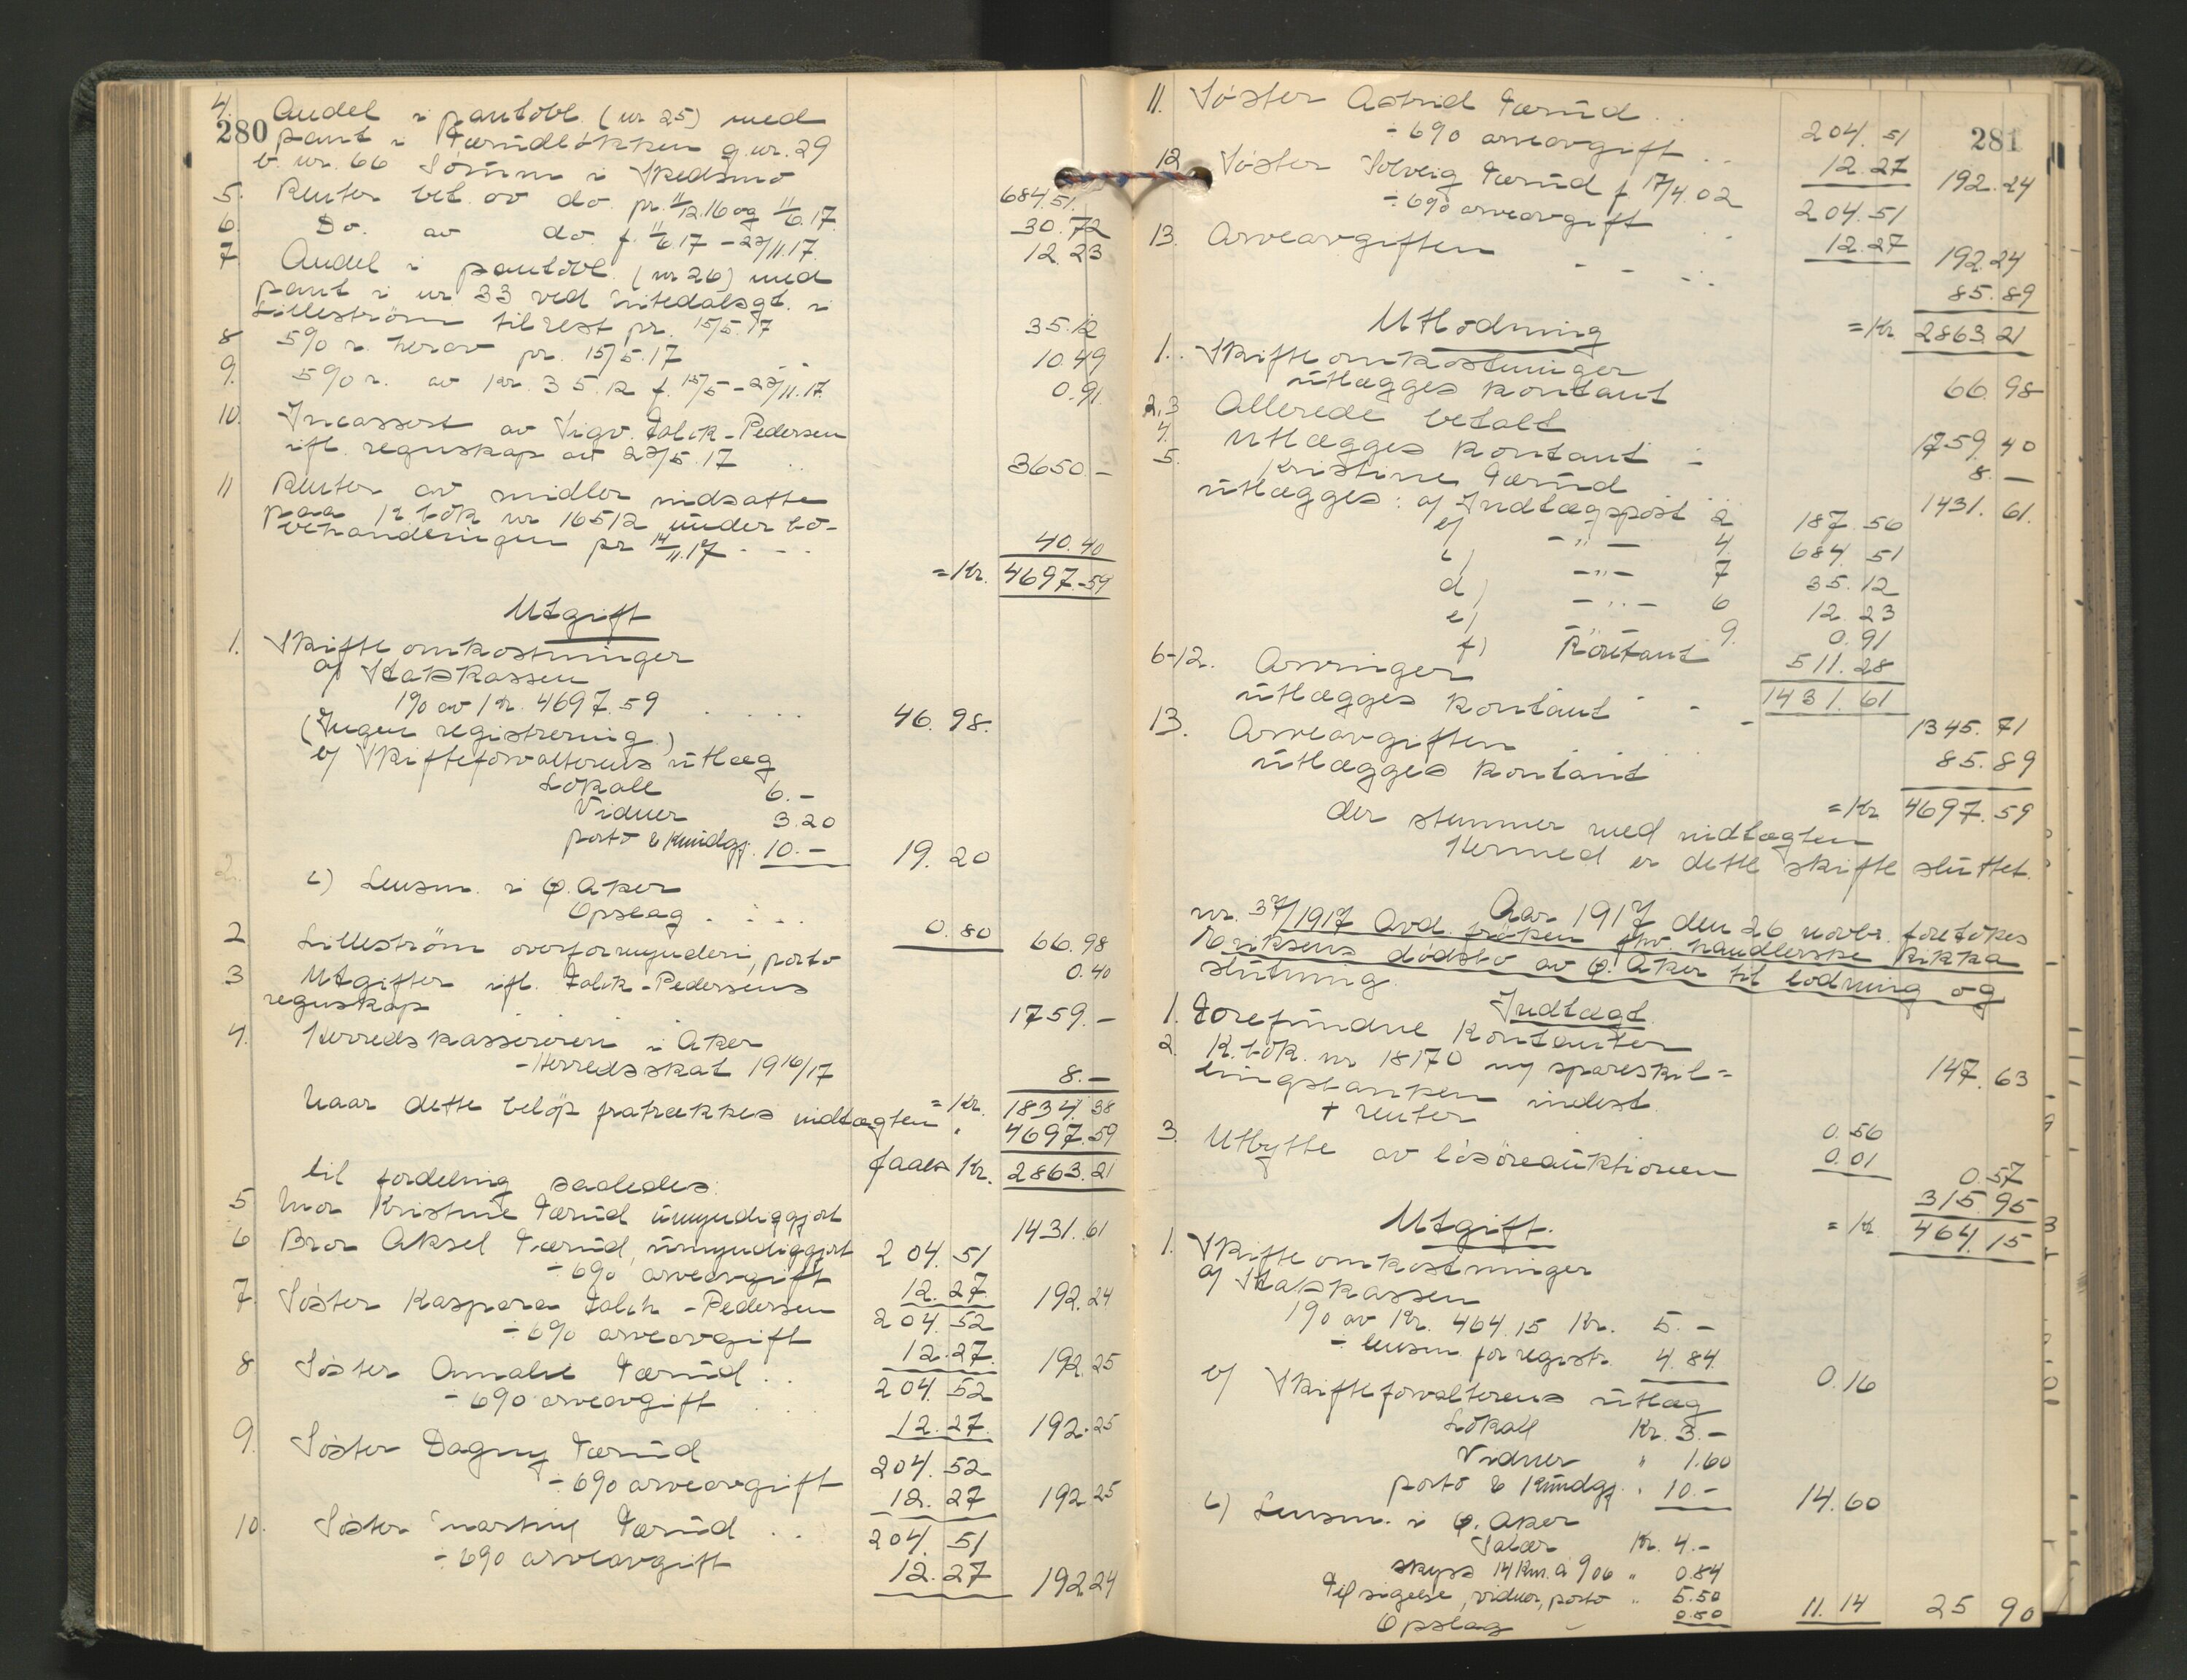 280
4. Andel i pantobl. (nr 25) med
pant i Færudløkken g.nr. 29
b. nr. 66 Sørum i Skedsmo 684.51.
5. Renter bet. av do. pr. 11/12.16 og 11/6.17. 30.72
6. Do. av do. f. 11/6.17 - 23/11.17. 12.23
7 Andel i pantobl. (nr 26) med
pant i nr 33 ved Nitedalsgt. i
Lilleström til rest pr. 15/5.17 35.12
8 5% r. herav pr. 15/5.17 10.49
9. 5% r. av Kr. 35.12 f. 15/5 - 23/11.17. 0.91
10. Incassert av Sigv. Falck-Pedersen
ifl. regnskap av 23/5.17 3650.-
11 Renter av midler indsatte
paa K bok nr 16512 under bo-
behandlingen pr 14/11.17 40.40
= Kr. 4697.59
Utgift
1. Skifteomkostninger
a) Statskassen
1% av Kr. 4697.59 46.98.
(Ingen registrering)
b) Skifteforvalterens utlæg
Lokale 6.-
Vidner 3.20
porto & Kundgj. 10.- 19.20
c) Lensm. i Ø. Aker
Opslag 0.80 66.98
2 Lilleström overformynderi, porto 0.40
3 Utgifter ifl. Falck-Pedersens
regnskap 1759.-
4. Herredskassereren i Aker
- Herredsskat 1916/17 8.-
= Kr. 1834.38
Naar dette beløp fratrækkes indtægten 4697.59
faaes Kr. 2863.21
til fordeling saaledes:
5 Mor Kristine Færud umyndiggjort 1431.61
6 Bror Aksel Færud, umyndiggjort 204.51
÷ 6% arveavgift 12.27. 192.24
7. Søster Kaspara Falck-Pedersen 204.52
÷ 6% arveavgift 12.27. 192.25
8 Søster Amalie Færud 204.52
÷ 6% arveavgift 12.27. 192.25
9. Søster Dagny Færud 204.52
÷ 6% arveavgift 12.27 192.25
10. Søster Martine Færud 204.51
÷ 6% arveavgift 12.27 192.24
281
11. Søster Astrid Færud 204.51
÷ 6% arveavgift 12.27 192.24
12 Søster Solveig Færud f 17/4.02 204.51
÷ 6% arveavgift 12.27 192.24
13. Arveavgiften 85.89
= Kr 2863.21
Utlodning
1. Skifteomkostninger
utlægges kontant 66.98
2,3 Allerede betalt 1759.40
4. utlægges kontant 8.-
5. Kristine Færud 1431.61.
utlægges: a) Indtægtspost 2 187.56
b) -"- 4. 684.51
c) -"- 7 35.12
d) -"- 6 12.23
e) 9. 0.91
f) Kontant 511.28
1431.61
6-12. Arvinger
utlægges kontant 1345.71
13. Arveavgiften
utlægges kontant 85.89
= Kr 4697.59
der stemmer med indtægten
Hermed er dette skifte sluttet.
Aar 1917 den 26 novbr. foretokes
nr. 37/1917 Avd. frøken fhv. handlerske Rikka
Eriksens dødsbo av Ø. Aker til lodning og
slutning.
Indtægt.
1. Forefundne Kontanter 147.63
2. K.bok. nr 18170 i ny spareskil=
lingsbanken indest. 0.56
+ renter 0.01 0.57
3. Utbytte av løsøreauktionen 315.95
= Kr 464.15
Utgift.
1. Skifteomkostninger
a) Statskassen
1% av Kr. 464.15 Kr. 5.-
÷ lensm. for registr. 4.84 0.16
b) Skifteforvalterens utlæg
Lokale Kr. 3.-
Vidner " 1.60
porto & Kundgj. " 10.- 14.60
c) Lensm. i Ø. Aker
Salær Kr. 4.-
skyss 14 Km. à %06 " 0.84
Tilsigelse, vidner, porto " 5.50
Opslag 0.80 11.14 25 90